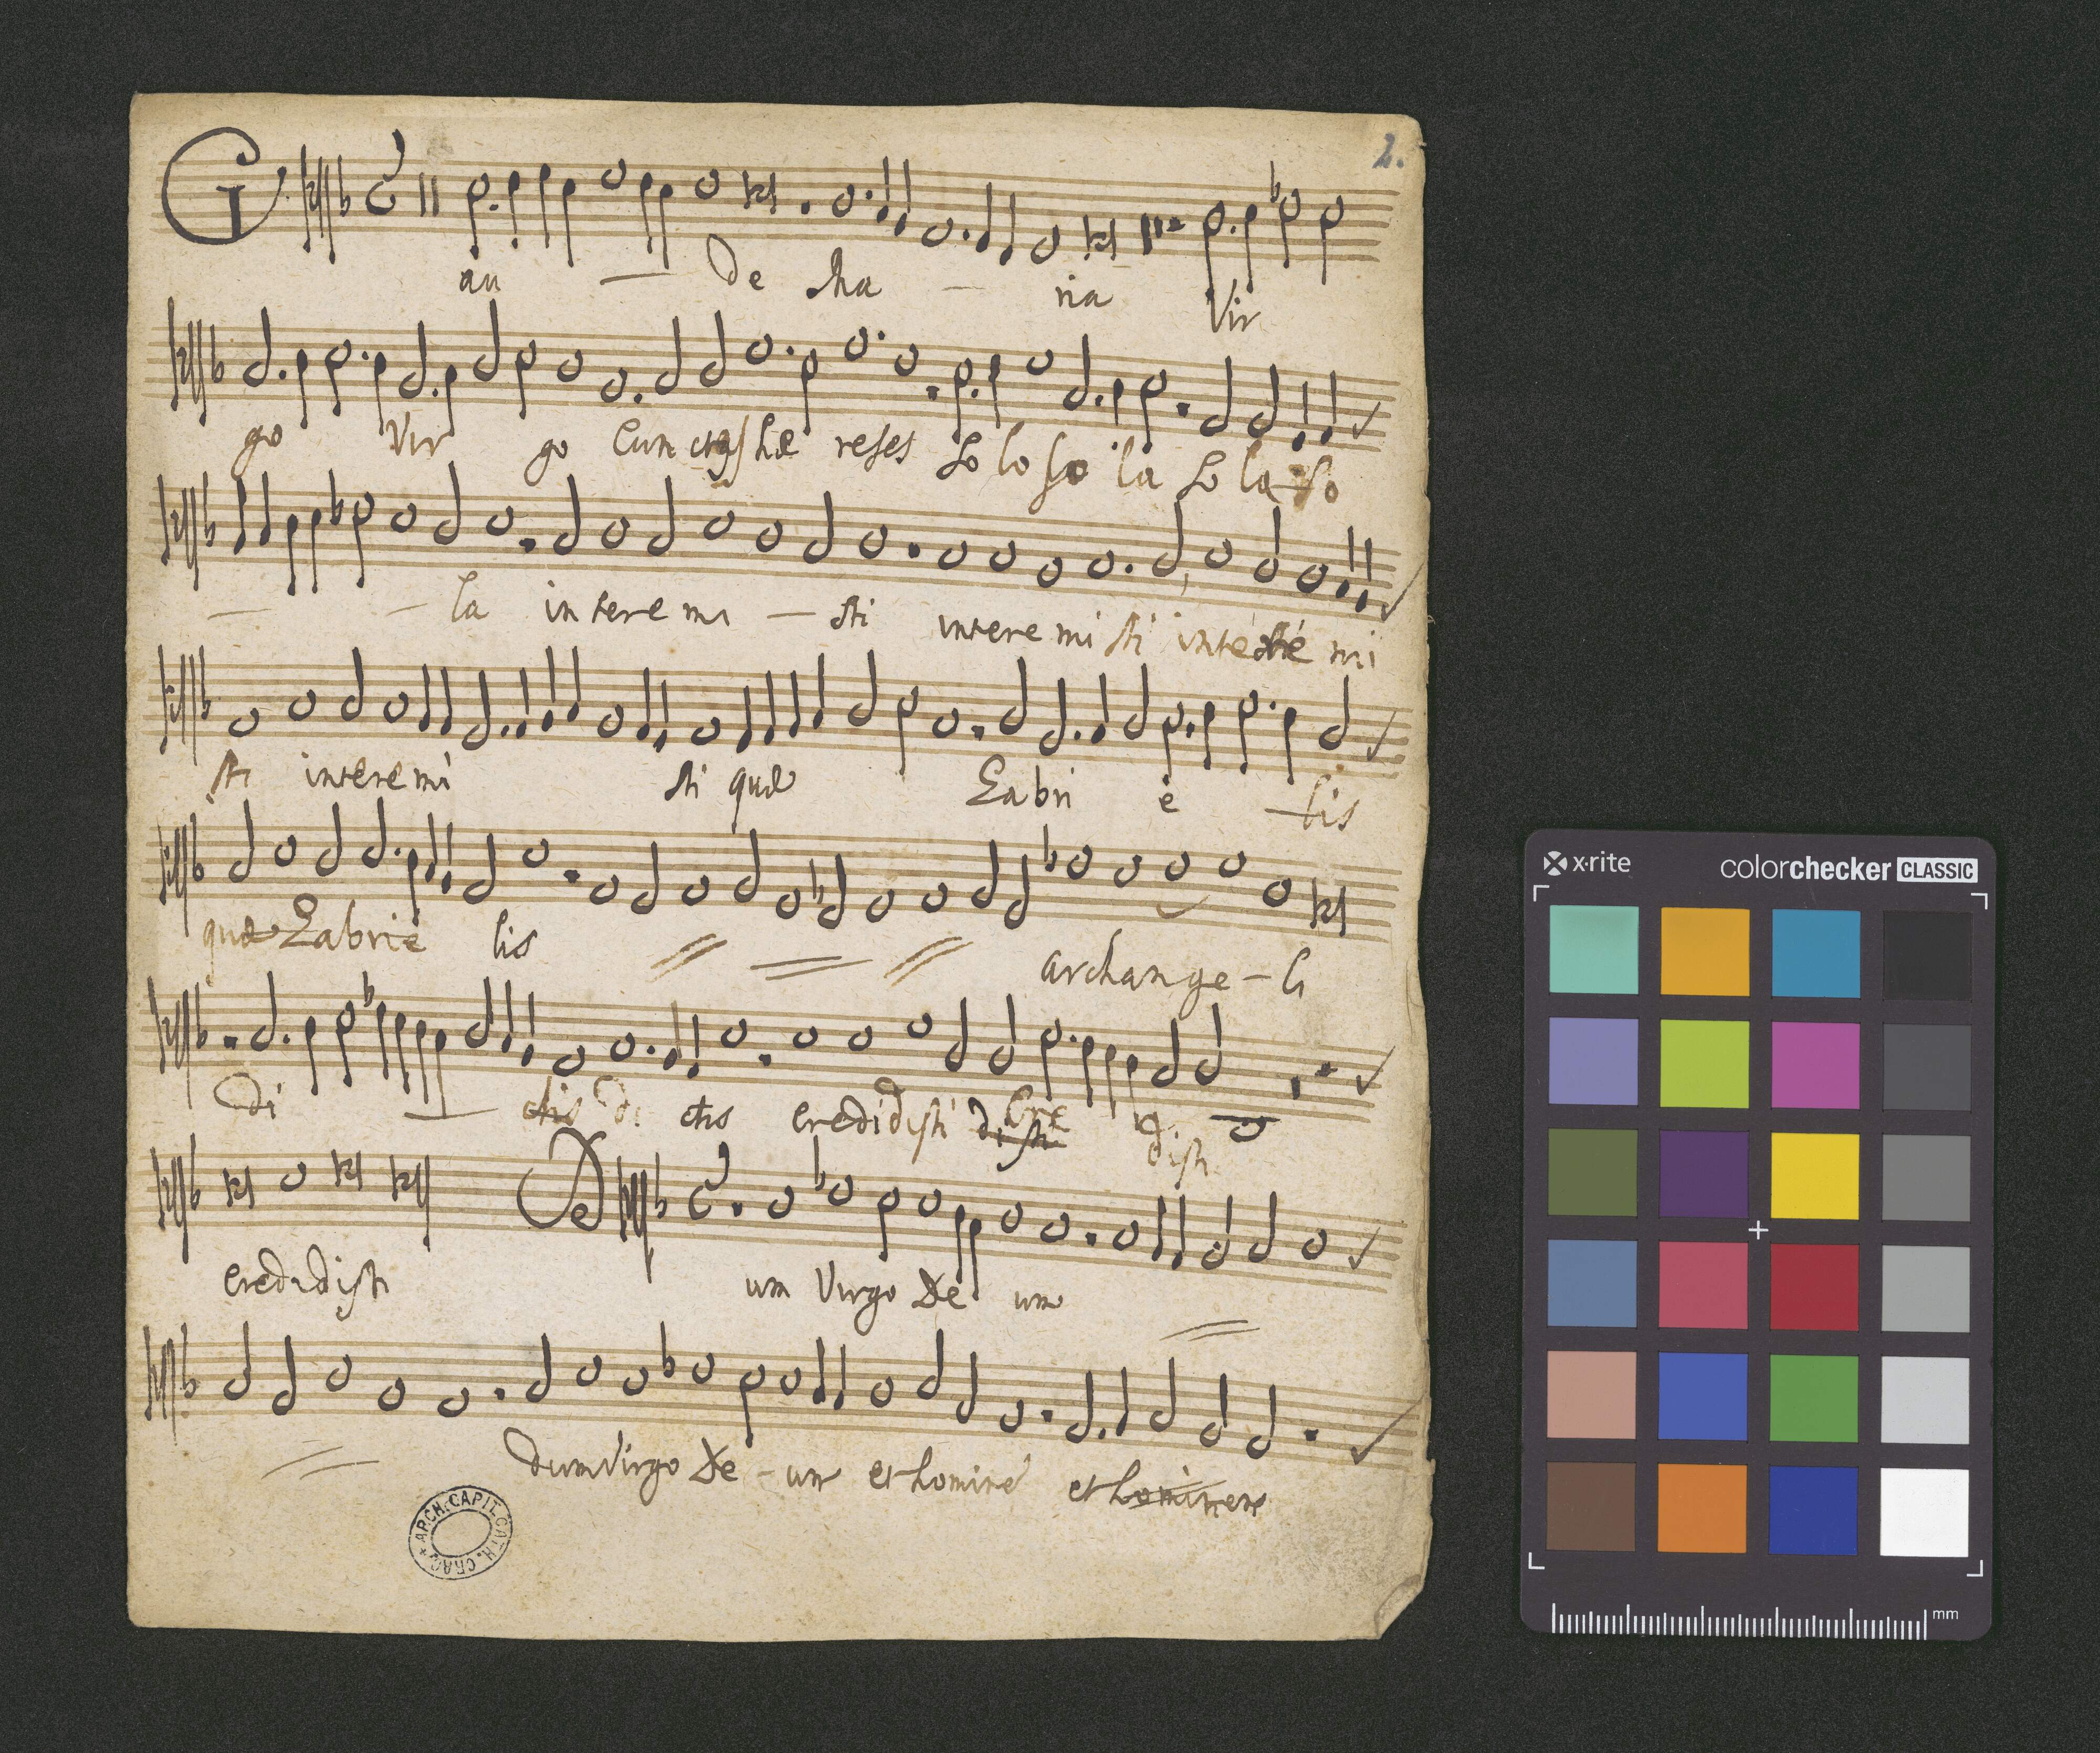 2.
G
au — de Ma — ria Vir
go Vir go Cunctas hæ reses So lo so la So la So
— — la interemi — sti interemisti interemi
sti interemi sti quæ Gabri e — lis
quæ Gabrie lis archange — li
Di — ctis di ctis credidisti Cre disti
credidisti D um Virgo De um
dum Virgo De — um et homine et hominem
ARCH. CAPIT. CATH. CRAC.
x·rite colorchecker CLASSIC
mm